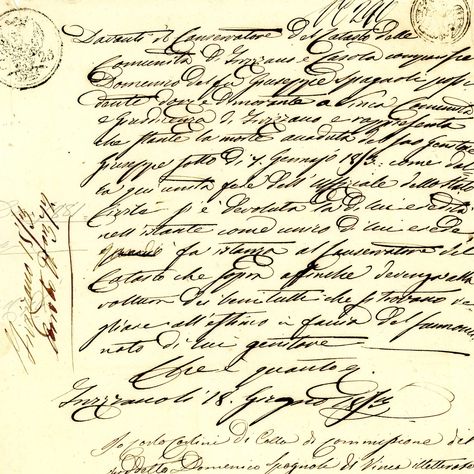 N 240
Davanti il Conservatore del Catasto delle
Comunità di Fivizzano e Casola comparisce
Domenico del fu Giuseppe Spagnoli possi
dente dove e dimorante a Vinca Comunità
e Giuditenza di Fivizzano e rappresenta
che stante la morte accaduta del suo genitore
Giuseppe sotto dì 7. Gennajo 1873: come dal
la qui unita fede dell'Uffiziale dello Stato
Civile si è devoluta la di lui eredità
nell'istante come unico di lui erede
fa istanza al Conservatore del
Catasto che sopra affinchè devenga alla
voltura dei beni tutti che si trovano ve
gliare all'estimo in faccia del summen
nato di lui genitore
Che è quanto
Fivizzano li 18. Giugno 1873
Io sottoscritto di commissione del
suddetto Domenico Spagnoli di Vinca illetterato
Fivizzano 1873